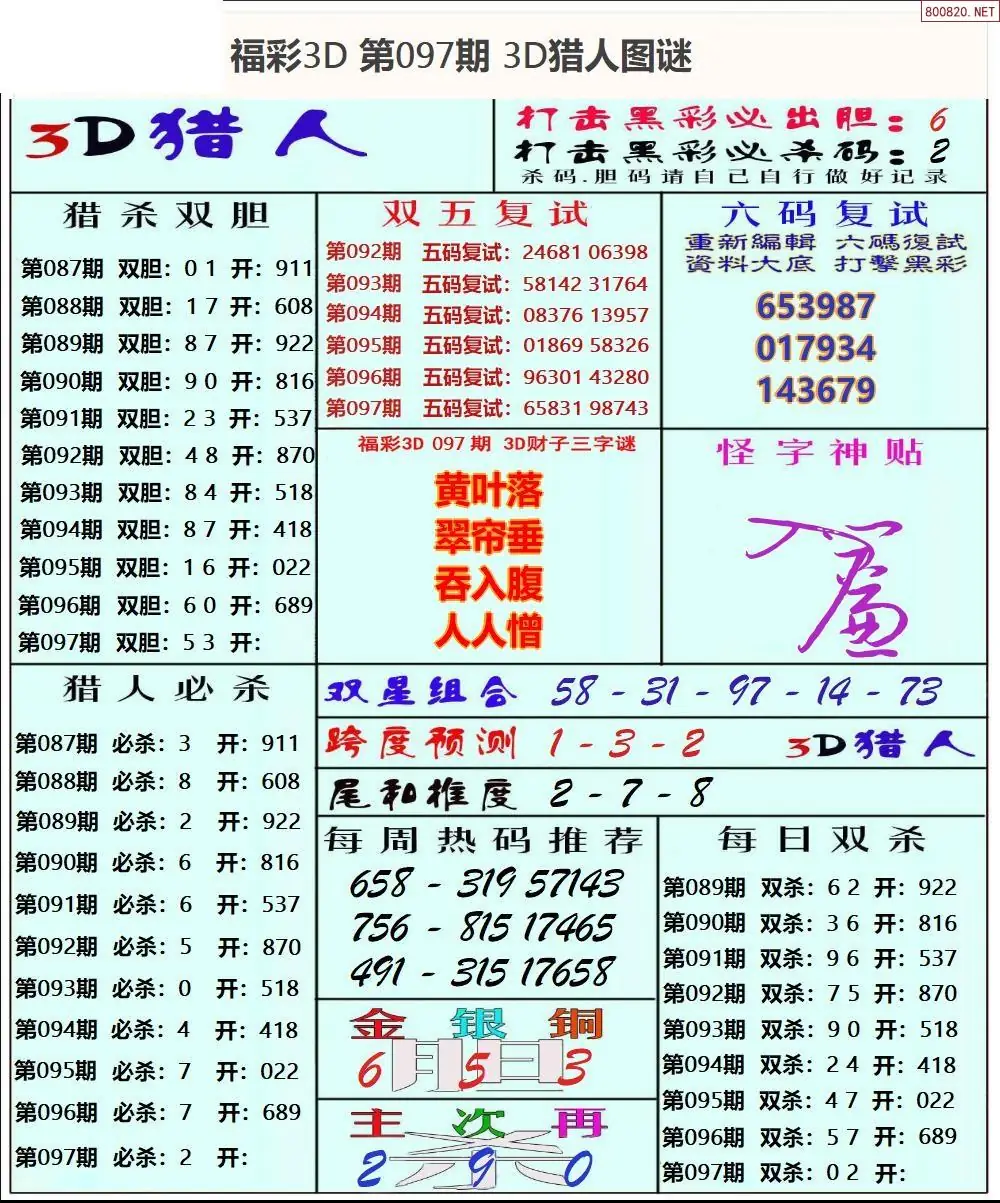 800820.NET
福彩3D 第097期 3D猎人图谜
3D猎人
打击黑彩必出胆：6
打击黑彩必杀码：2
杀码.胆码请自己自行做好记录
猎杀双胆
第087期 双胆：0 1 开：911
第088期 双胆：1 7 开：608
第089期 双胆：8 7 开：922
第090期 双胆：9 0 开：816
第091期 双胆：2 3 开：537
第092期 双胆：4 8 开：870
第093期 双胆：8 4 开：518
第094期 双胆：8 7 开：418
第095期 双胆：1 6 开：022
第096期 双胆：6 0 开：689
第097期 双胆：5 3 开：
双五复试
第092期 五码复试：24681 06398
第093期 五码复试：58142 31764
第094期 五码复试：08376 13957
第095期 五码复试：01869 58326
第096期 五码复试：96301 43280
第097期 五码复试：65831 98743
六码复试
重新編輯 六碼復試
資料大底 打擊黑彩
653987
017934
143679
福彩3D 097 期 3D财子三字谜
黄叶落
翠帘垂
吞入腹
人人憎
怪字神贴
猎人必杀
第087期 必杀：3 开：911
第088期 必杀：8 开：608
第089期 必杀：2 开：922
第090期 必杀：6 开：816
第091期 必杀：6 开：537
第092期 必杀：5 开：870
第093期 必杀：0 开：518
第094期 必杀：4 开：418
第095期 必杀：7 开：022
第096期 必杀：7 开：689
第097期 必杀：2 开：
双星组合 58 - 31 - 97 - 14 - 73
跨度预测 1 - 3 - 2 3D猎人
尾和推度 2 - 7 - 8
每周热码推荐
658 - 319 57143
756 - 815 17465
491 - 315 17658
金银铜
胆
6 5 3
主次再
杀
2 9 0
每日双杀
第089期 双杀：6 2 开：922
第090期 双杀：3 6 开：816
第091期 双杀：9 6 开：537
第092期 双杀：7 5 开：870
第093期 双杀：9 0 开：518
第094期 双杀：2 4 开：418
第095期 双杀：4 7 开：022
第096期 双杀：5 7 开：689
第097期 双杀：0 2 开：